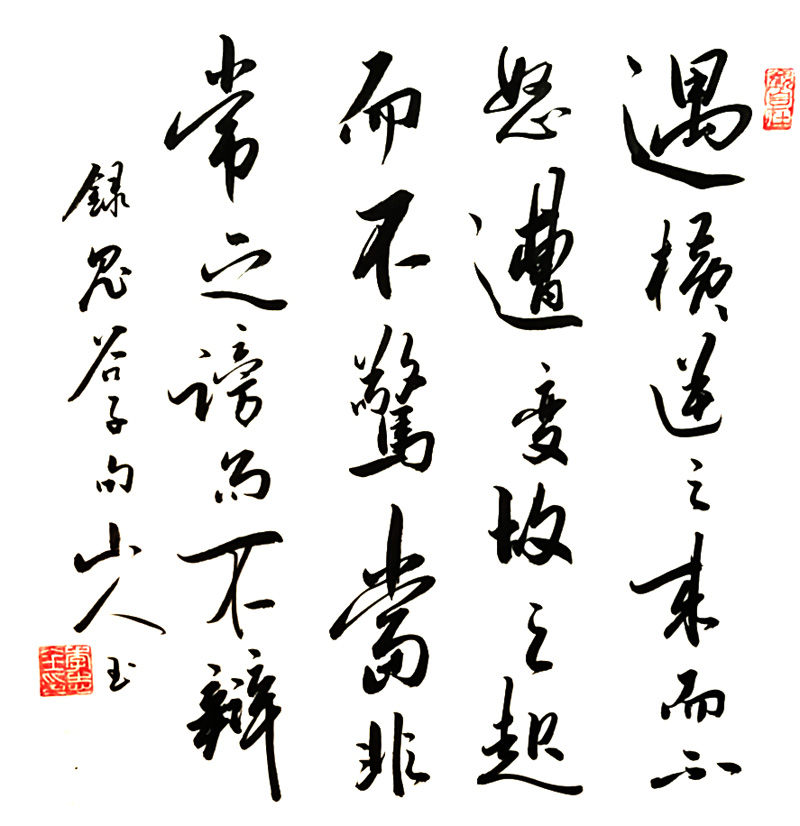 遇橫逆之来而不
怒遭变故之起
而不驚當非
常之謗而不辯
録鬼谷子句山人玉